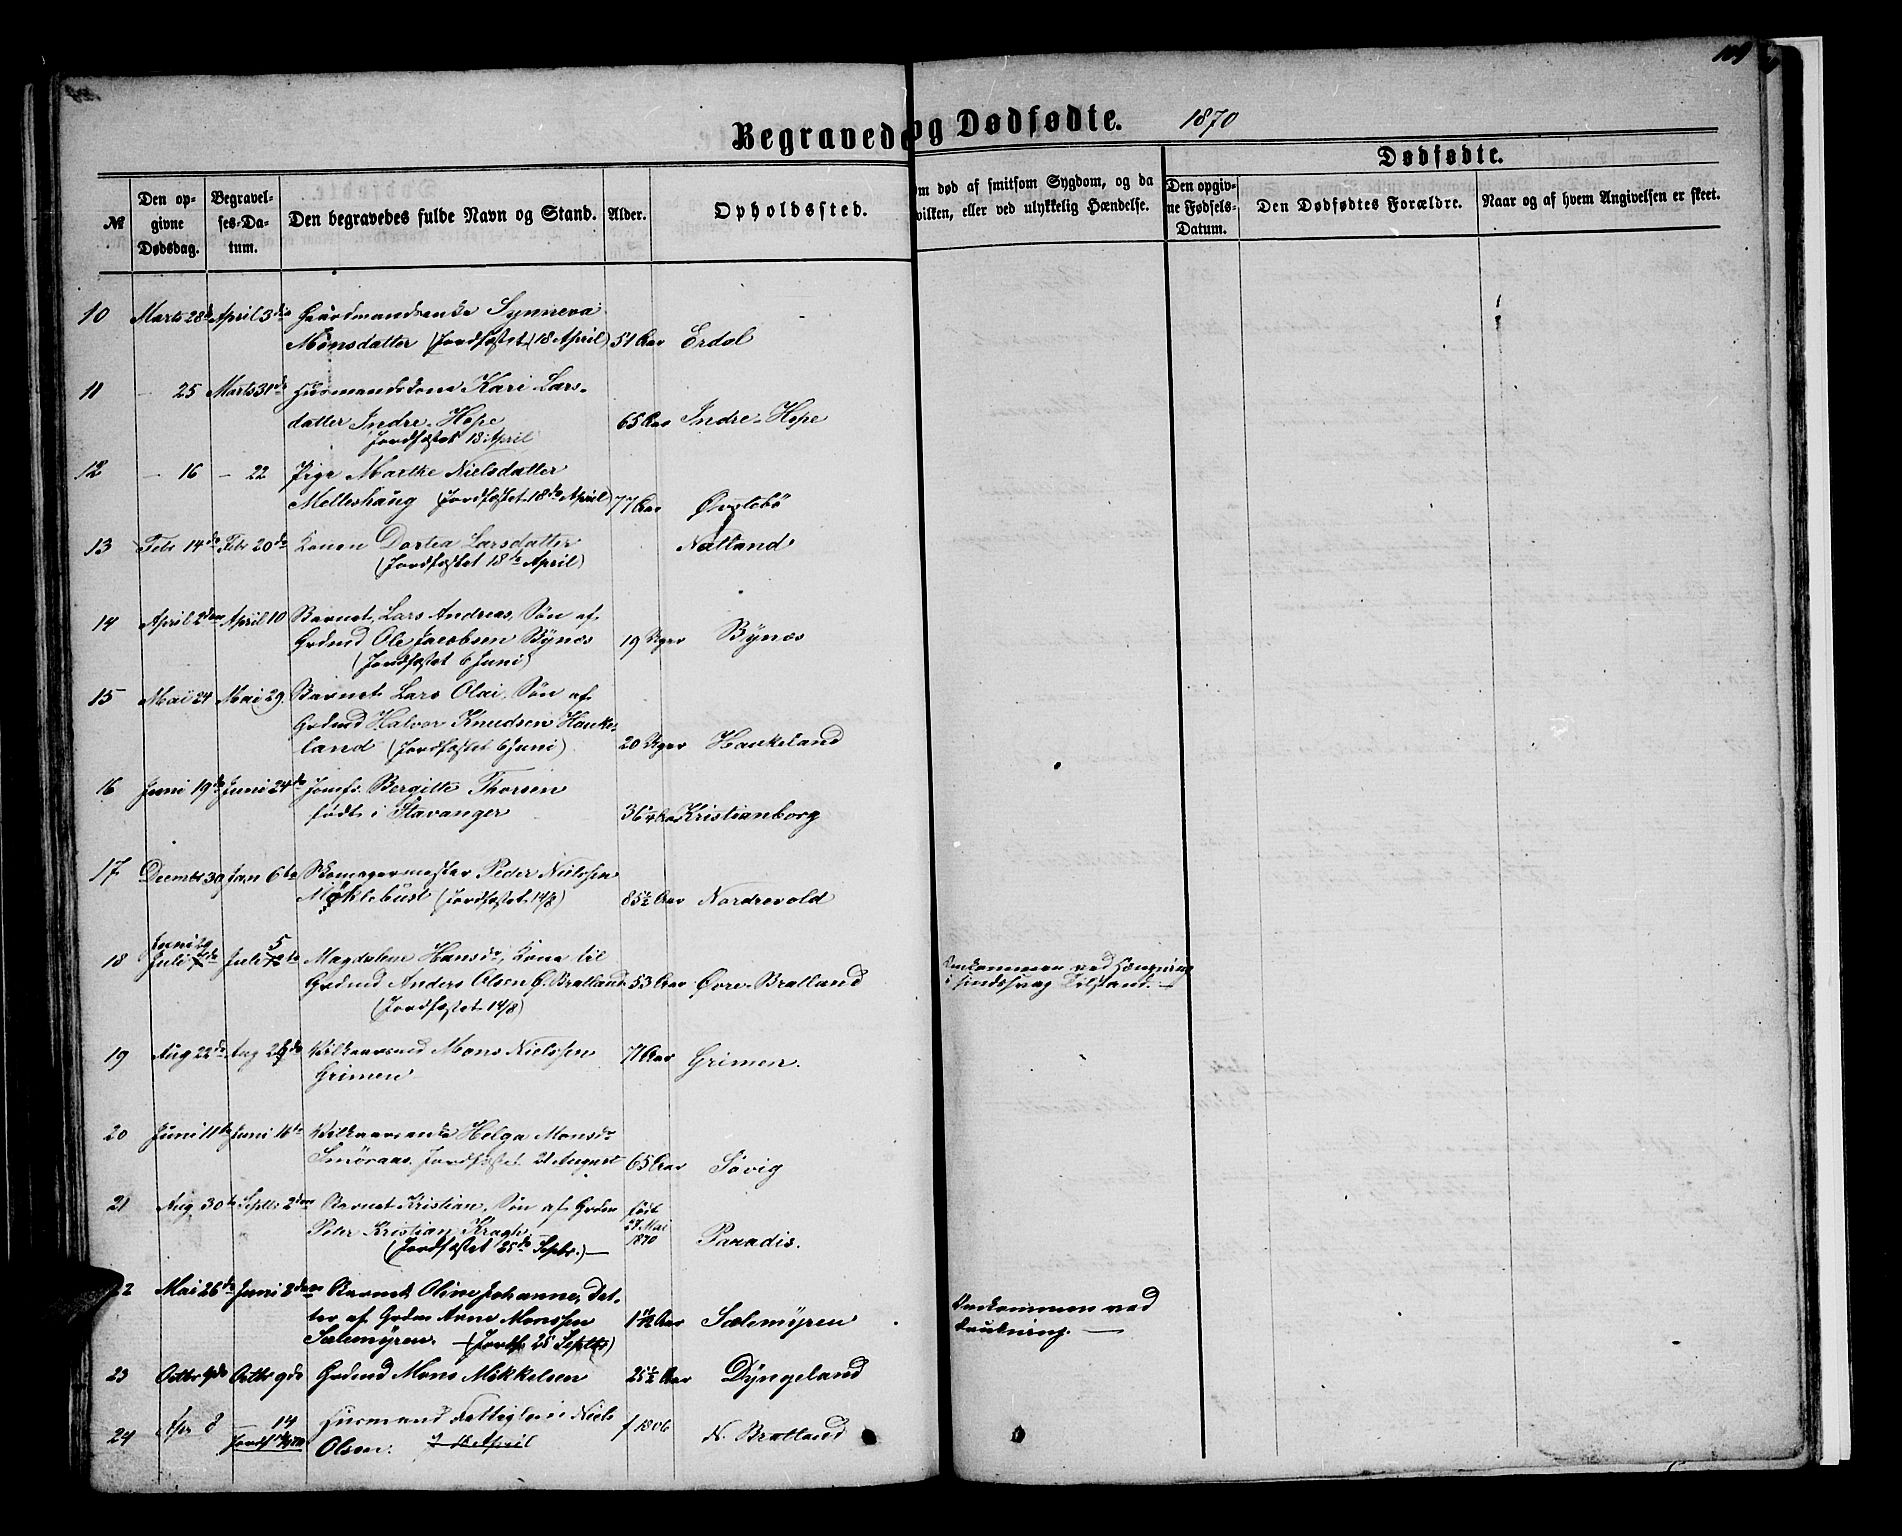 Begravede og Dødfødte. 1870
Dødfødte.
№ Den opgivne Dødsdag. Begravelses-Datum. Den begravedes fulde Navn og Stand. Alder. Opholdssted. Om død af smitsom Sygdom, og da hvilken, eller ved ulykkelig Hændelse. Den opgivne Fødsels-Datum. Den Dødfødtes Forældre. Naar og af hvem Angivelsen er skeet.
10 Marts 28de April 3die Gaardmandsenke Synneva
Monsdatter (Jordfæstet 18 April) 51 Aar Erdal
11 – 25 Marts 31de Husmandskone Kari Lars-
datter Indre-Hope 65 Aar Indre-Hope
Jordfæstet 18 April
12 – 16 – 22 Pige Marthe Nielsdatter
Melleshaug (Jordfæstet 18de April) 77 Aar
13 Febr 14de Febr 20de Konen Dortea Larsdatter Natland
(Jordfæstet 18de April)
14 April 2den April 10 Barnet Lars Andreas, Søn af
Grdmd Ole Jacobsen Bynes 19 Uger Bynes
(Jordfæstet 6 Juni)
15 Mai 24 Mai 29. Barnet Lars Olai, Søn af
Grdmd Halvor Knudsen Hauke-
land (Jordfæstet 6 Juni) 20 Uger Haukeland
16 Juni 19de Juni 24de Jomfr. Bergitte Thorsen
født i Stavanger Kristianborg
17 Decmbr 30 Jan 6te Skomagermester Peder Nielssen
Møklebust (Jordfæstet 14/8) 85½ Aar Nordrevold
18 Juli Juli 5 Magdalene Hansdr, Kone til
Grdmd Anders Olsen Ø. Bratland 53 Aar Øvre-Bratland
(Jordfæstet 14/8)
Omkommen ved Hængning
i sindssvag Tilstand. —
19 Aug 22de Aug Vilkaarsmd Mons Nielssen 71 Aar Grimen.
Grimen
20 Juni 11te Juni 16de Vilkaarsenke Helga Monsdr
Smöraas. Jordfæstet 21 August 65 Aar Søvig
21 Aug 30te Septbr 2den Barnet Kristian, Søn af Grdm født
Peter Kristian Kragh. 27 Mai
(Jordfæstet 25de Septbr.) — 1870 Paradis.
22 Mai 26de Juni 2den Barnet Oline Johanne, Dat-
ter af Grdm Arne Monssen 1½ Aar Sælemyren
Sælemyren. — (Jordf. 25 Septbr)
Omkommen ved
Drukning. —
23 Octbr 9de Octbr 9de Grdmd Mons Mikkelsen 25½ Aar Dyngeland
24 Apr 8 – 14 Husmand Fattiglem Niels f 1806 N. Bratland
Olsen. J 18 April